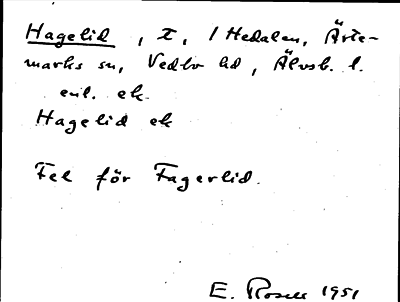 Hagelid, t, i Hedalen, Ärte-
marks sn, Vedbo hd, Älvsb. l.
enl. ek.
Hagelid ek
Fel för Fagerlid.
E. Rosell 1951